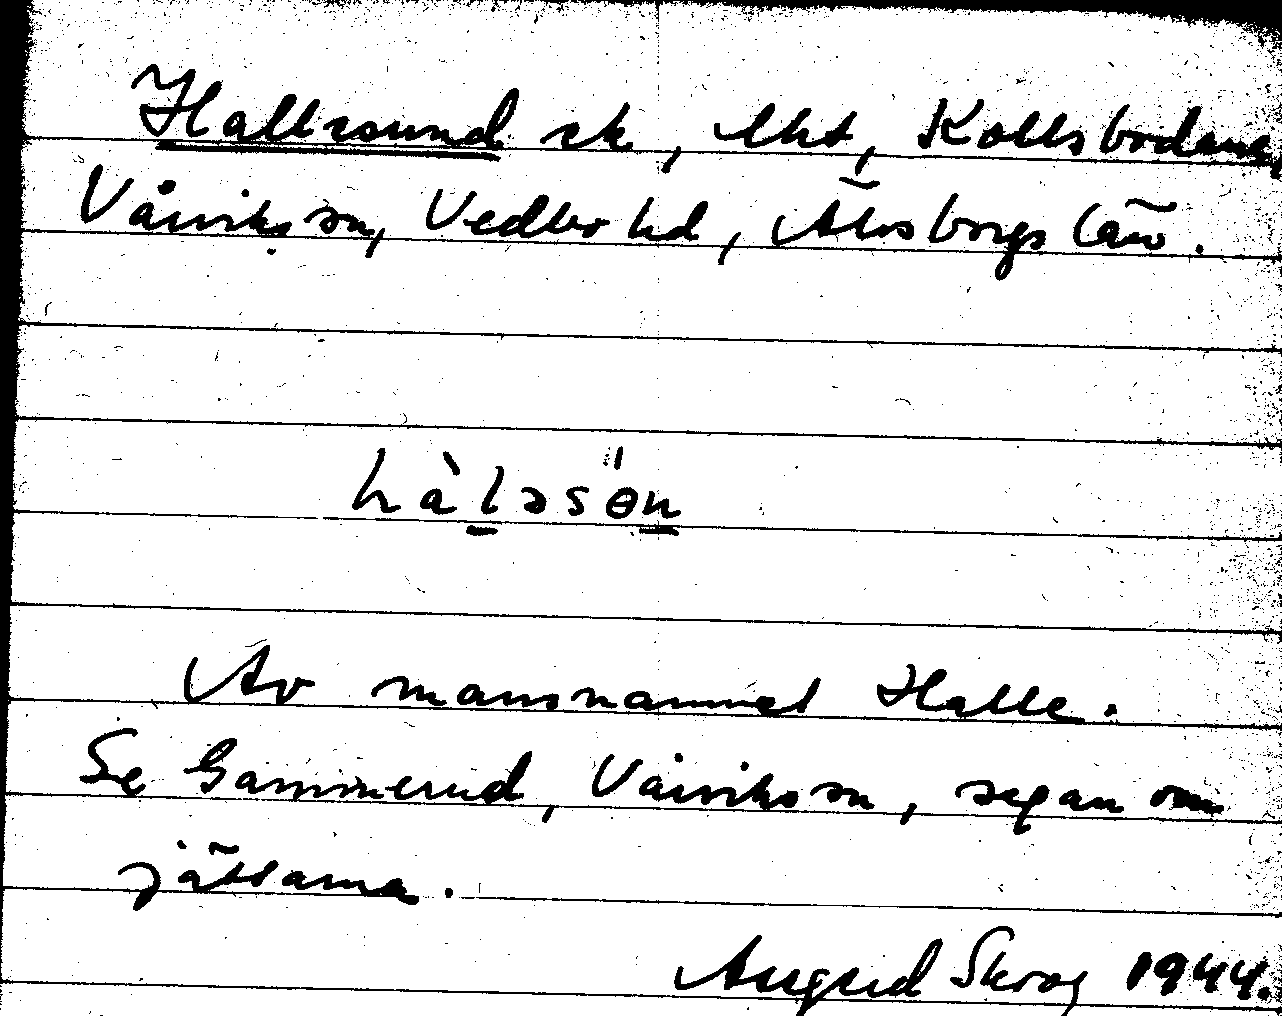 Hallesund sk, lht, Kollsbodane,
Vårviks sn, Vedbo hd, Älvsborgs län.
hàləsɵ́n
Av mansnamnet Halle.
Se Gammerud, Vårviks sn, sägan om
jättarna.
Augud Skrog 1944.